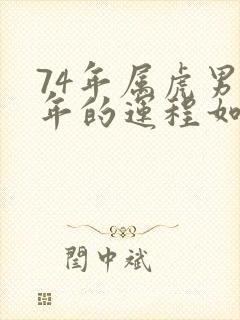 74年属虎男
年的运程如
闺中斌